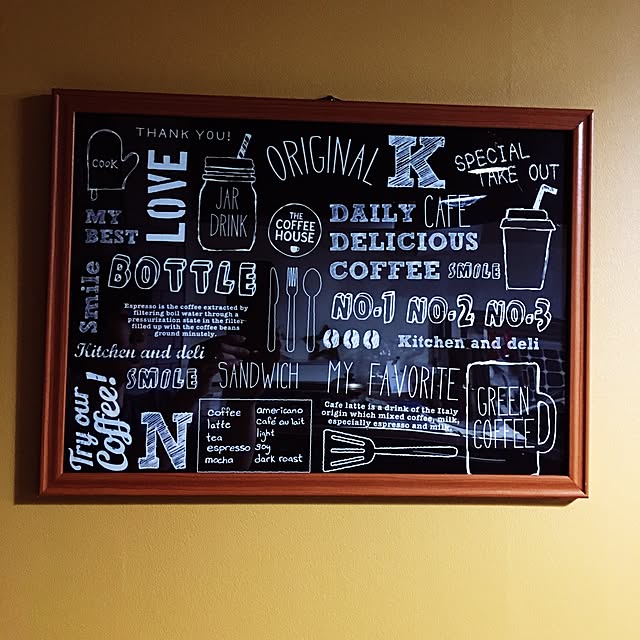 THANK YOU!
COOK
LOVE
MY
BEST
JAR
DRINK
ORIGINAL
K
SPECIAL
TAKE OUT
THE
COFFEE
HOUSE
DAILY CAFE
DELICIOUS
COFFEE SMILE
Smile
BOTTLE
Espresso is the coffee extracted by
filtering boil water through a
pressurization state in the filter
filled up with the coffee beans
ground minutely.
NO.1 NO.2 NO.3
Kitchen and deli
Kitchen and deli
SMILE
SANDWICH
MY FAVORITE
Try our
Coffee!
N
Coffee
latte
tea
espresso
mocha
americano
café au lait
light
soy
dark roast
Cafe latte is a drink of the Italy
origin which mixed coffee, milk,
especially espresso and milk.
GREEN
COFFEE